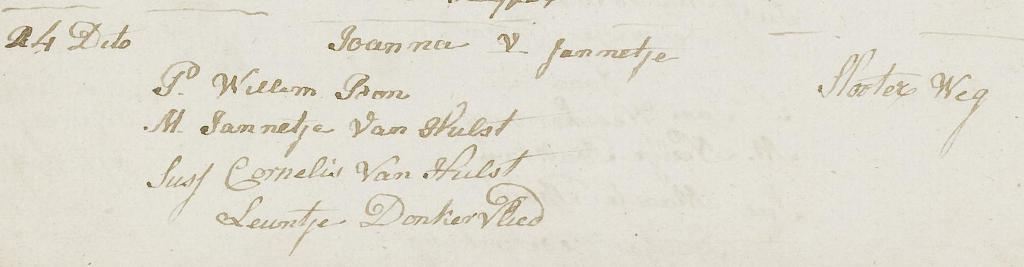 24 Dito Joanna V Jannetje Slooter Weg
P. Willem Pron
M. Jannetje Van Hulst
Susf Cornelis Van Hulst
Leuntje Donkervlied